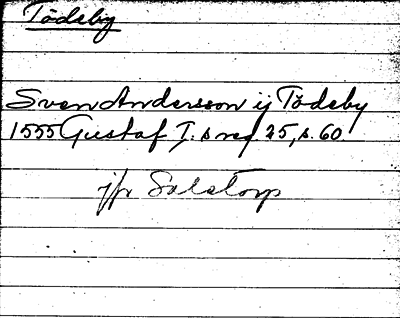 Tödeby
Sven Andersson ij Tödeby
1555 Gustaf I:s reg 25, s. 60.
jfr Salstorp